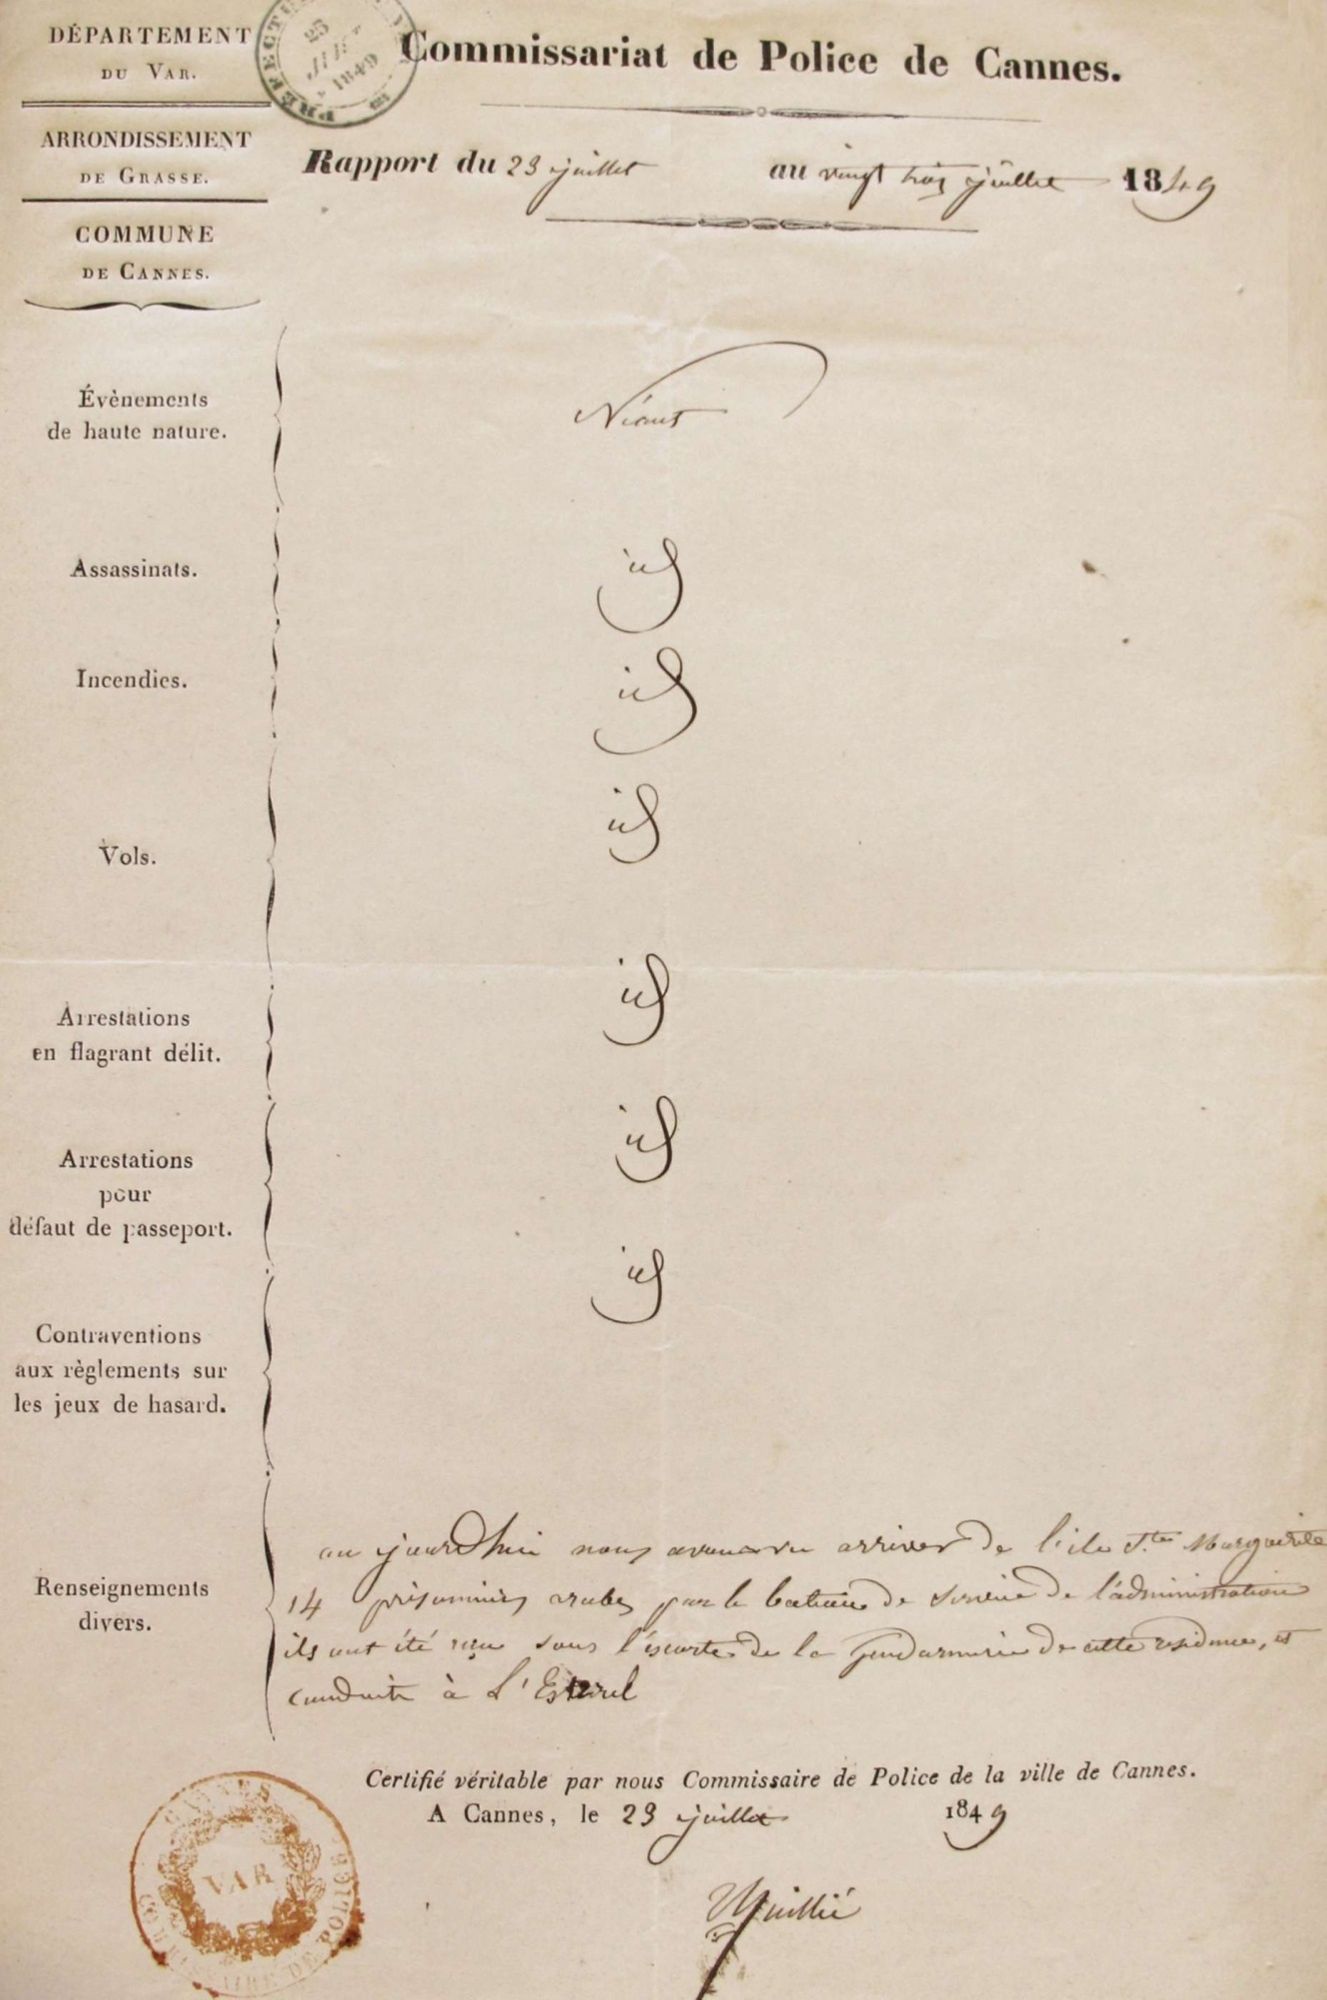 DÉPARTEMENT
DU VAR.
ARRONDISSEMENT
DE GRASSE.
COMMUNE
DE CANNES.
23
1849
Commissariat de Police de Cannes.
Rapport du 23 juillet au vingt trois juillet 1849
Évènements
de haute nature.
Néant
Assassinats.
id
Incendies.
id
Vols.
id
Arrestations
en flagrant délit.
id
Arrestations
pour
défaut de passeport.
id
Contraventions
aux règlements sur
les jeux de hasard.
id
Renseignements
divers.
aujourd'hui nous avons vu arriver de l'ile Ste Marguerite
14 prisonniers arabes par le bateau de service de l'administration
ils ont été reçu sous l'escorte de la gendarmerie de cette residence, et
conduits à L'Esterel
Certifié véritable par nous Commissaire de Police de la ville de Cannes.
A Cannes, le 23 juillet 1849
CANNES
VAR
COMMISSAIRE DE POLICE